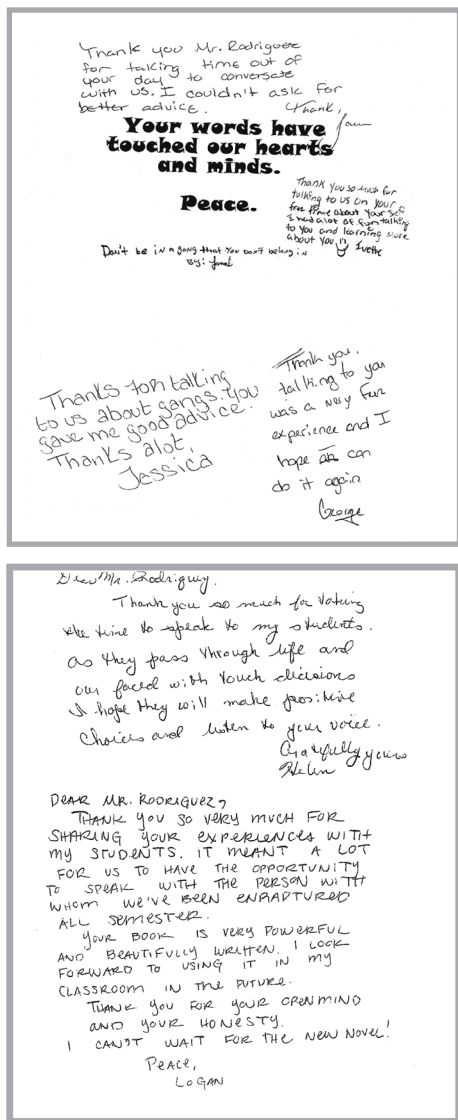 Thank you Mr. Rodriguez
for talking time out of
your day to conversate
with us. I couldn't ask for
better advice. Thank,
Your words have
touched our hearts
and minds.
Peace.
Thank you so much for
talking to us on your
free time about your self
I had alot of fun talking
to you and learning more
about you Ivette
Don't be in a gang that you don't belong in
By: Jamal
Thanks for talking
to us about gangs. You
gave me good advice.
Thanks alot,
Jessica
Thank you,
talking to you
was a very fun
experience and I
hope can
do it again
George
Dear Mr. Rodriguez.
Thank you so much for taking
the time to speak to my students.
as they pass through life and
our faced with touch dicisions
I hope they will make positive
choices and listen to your voice.
Gratefully yours
Helen
DEAR MR. RODRIGUEZ,
THANK YOU SO VERY MUCH FOR
SHARING YOUR EXPERIENCES WITH
MY STUDENTS. IT MEANT A LOT
FOR US TO HAVE THE OPPORTUNITY
TO SPEAK WITH THE PERSON WITH
WHOM WE'VE BEEN ENRAPTURED
ALL SEMESTER.
YOUR BOOK IS VERY POWERFUL
AND BEAUTIFULLY WRITTEN. I LOOK
FORWARD TO USING IT IN MY
CLASSROOM IN THE FUTURE.
THANK YOU FOR YOUR OPEN MIND
AND YOUR HONESTY.
I CAN'T WAIT FOR THE NEW NOVEL!
PEACE,
LOGAN